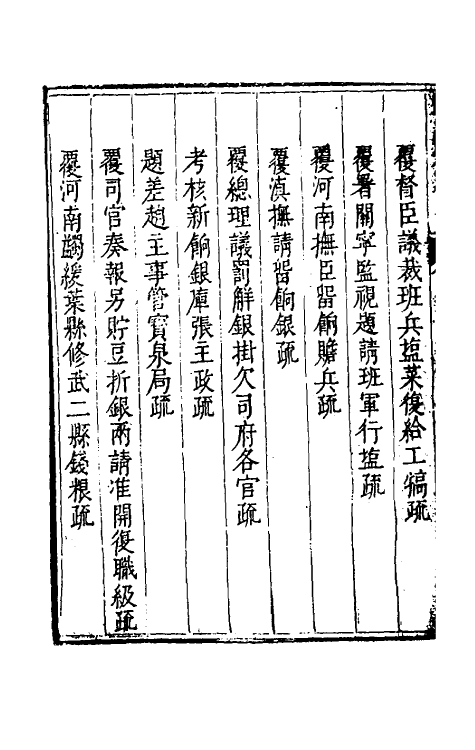 覆督臣議裁班兵塩菜復給工犒疏
覆署關寧監視題請班軍行塩疏
覆河南撫臣留餉贍兵疏
覆滇撫請留餉銀疏
覆總理議罰觧銀掛欠司府各官疏
考核新餉銀庫張主政疏
題差趙主事管寳泉局疏
覆司官奏報另貯豆折銀兩請准開復職級疏
覆河南蠲緩葉縣修武二縣錢粮疏